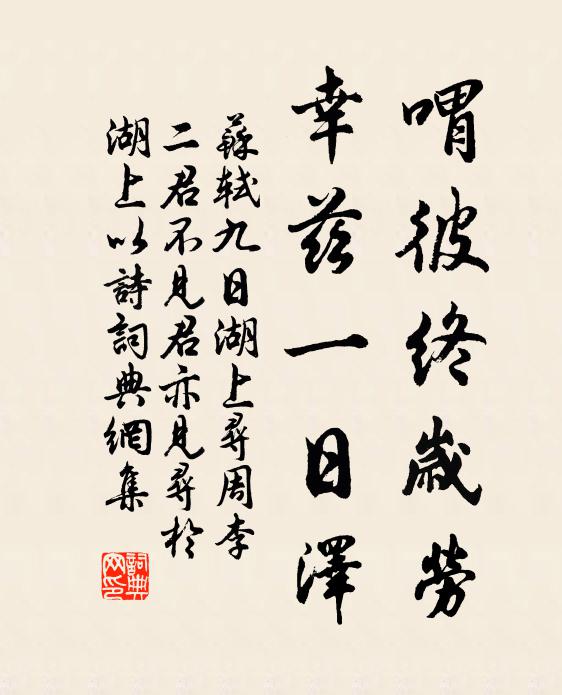 喟彼終歲勞
幸茲一日澤
蘇軾九日湖上尋周李
二君不見君亦見尋於
湖上以詩詞典網集
詞典
网印